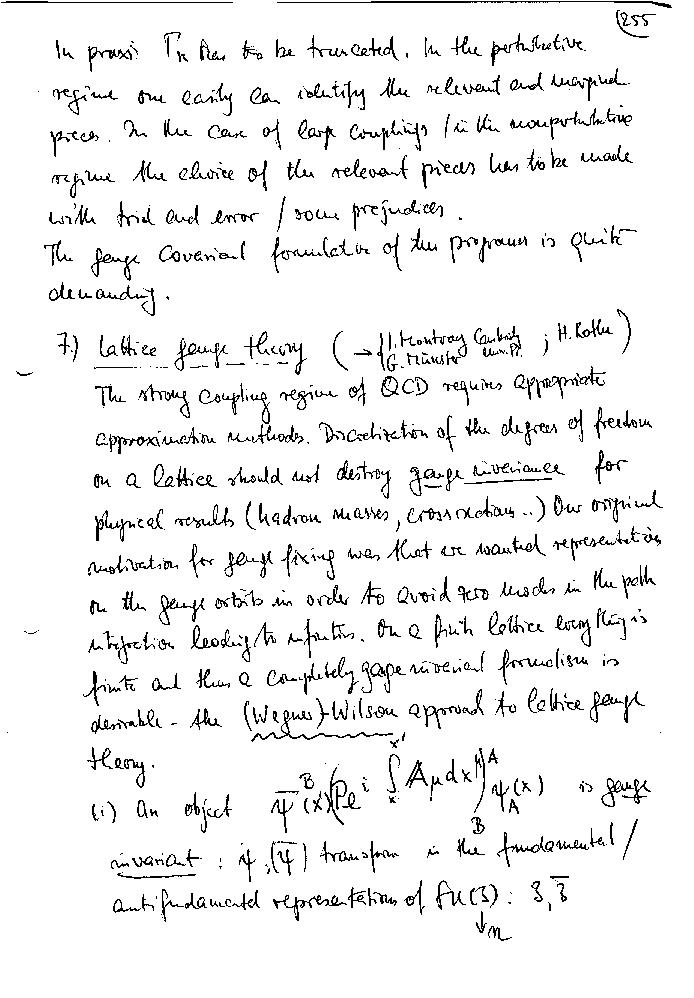 255
In praxi Γk has to be truncated. In the perturbative
regime one easily can identify the relevant and marginal
pieces. In the case of large couplings / in the nonperturbative
regime the choice of the relevant pieces has to be made
with trial and error / some prejudices.
The gauge covariant formulation of this program is quite
demanding.
7.) Lattice gauge theory (→ { I. Montvay Cambridge ; H. Rothe )
G. Münster Univ. Pr.
The strong coupling regime of QCD requires appropriate
approximation methods. Discretization of the degrees of freedom
on a lattice should not destroy gauge invariance for
physical results (hadron masses, cross sections ..) Our original
motivation for gauge fixing was that we wanted representatives
on the gauge orbits in order to avoid zero modes in the path
integration leading to infinities. On a finite lattice everything is
finite and thus a completely gauge invariant formalism is
desirable - the (Wegner)-Wilson approach to lattice gauge
theory.
(i) An object ψ̄^B(x')(P e^{i ∫_x^{x'} A_μ dx^μ})_B^A ψ_A(x) is gauge
invariant : ψ, (ψ̄) transform in the fundamental /
antifundamental representations of SU(3) : 3, 3̄
↓n